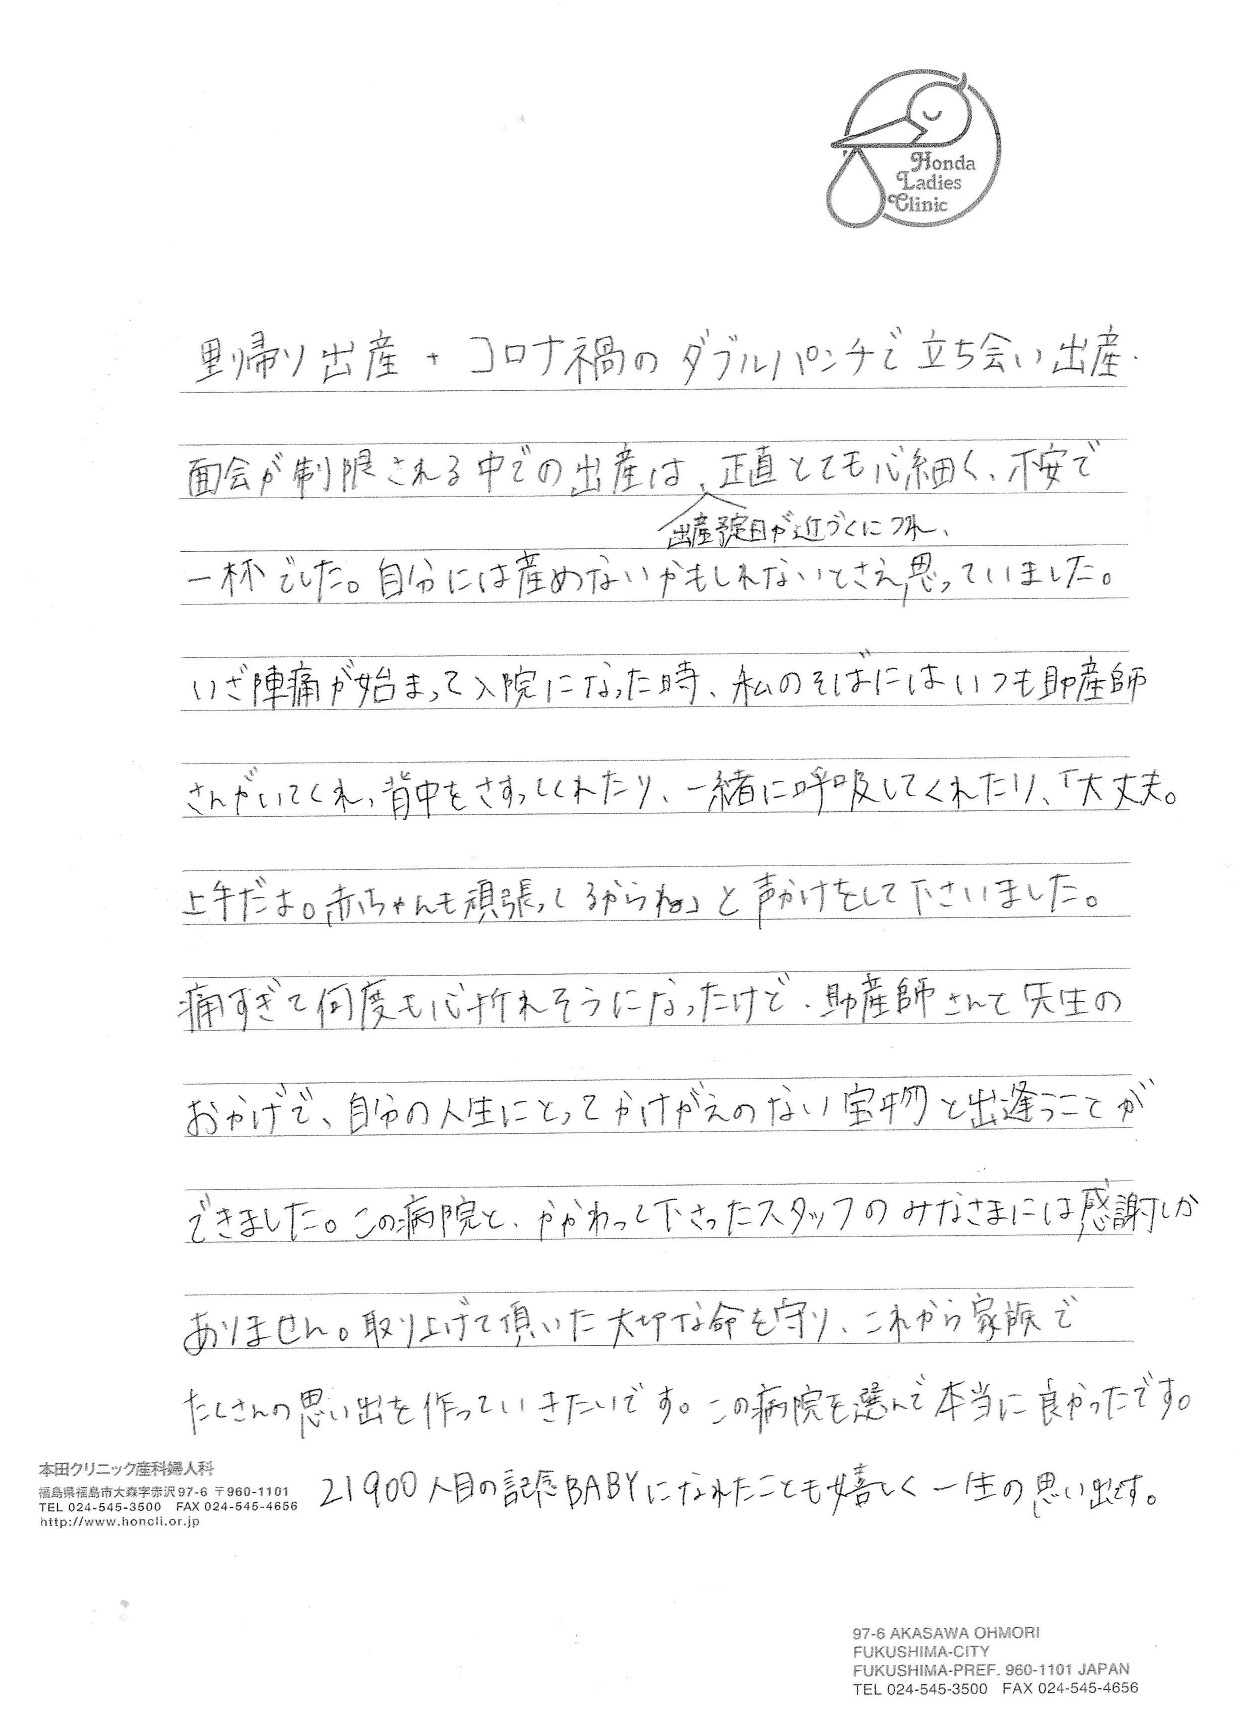 Honda
Ladies
Clinic
里帰り出産+コロナ禍のダブルパンチで立ち会い出産・
面会が制限される中での出産は、正直とても心細く、不安で
出産予定日が近づくにつれ、
一杯でした。自分には産めないかもしれないとさえ思っていました。
いざ陣痛が始まって入院になった時、私のそばにはいつも助産師
さんがいてくれ、背中をさすってくれたり、一緒に呼吸してくれたり、「大丈夫。
上手だよ。赤ちゃんも頑張ってるからね。」と声かけをして下さいました。
痛すぎて何度も心折れそうになったけど、助産師さんと先生の
おかげで、自分の人生にとってかけがえのない宝物と出逢うことが
できました。この病院と、かかわって下さったスタッフのみなさまには感謝しか
ありません。取り上げて頂いた大切な命を守り、これから家族で
たくさんの思い出を作っていきたいです。この病院を選んで本当に良かったです。
21900人目の記念BABYになれたことも嬉しく一生の思い出です。
本田クリニック産科婦人科
福島県福島市大森字赤沢97-6 〒960-1101
TEL 024-545-3500 FAX 024-545-4656
http://www.honcli.or.jp
97-6 AKASAWA OHMORI
FUKUSHIMA-CITY
FUKUSHIMA-PREF. 960-1101 JAPAN
TEL 024-545-3500 FAX 024-545-4656